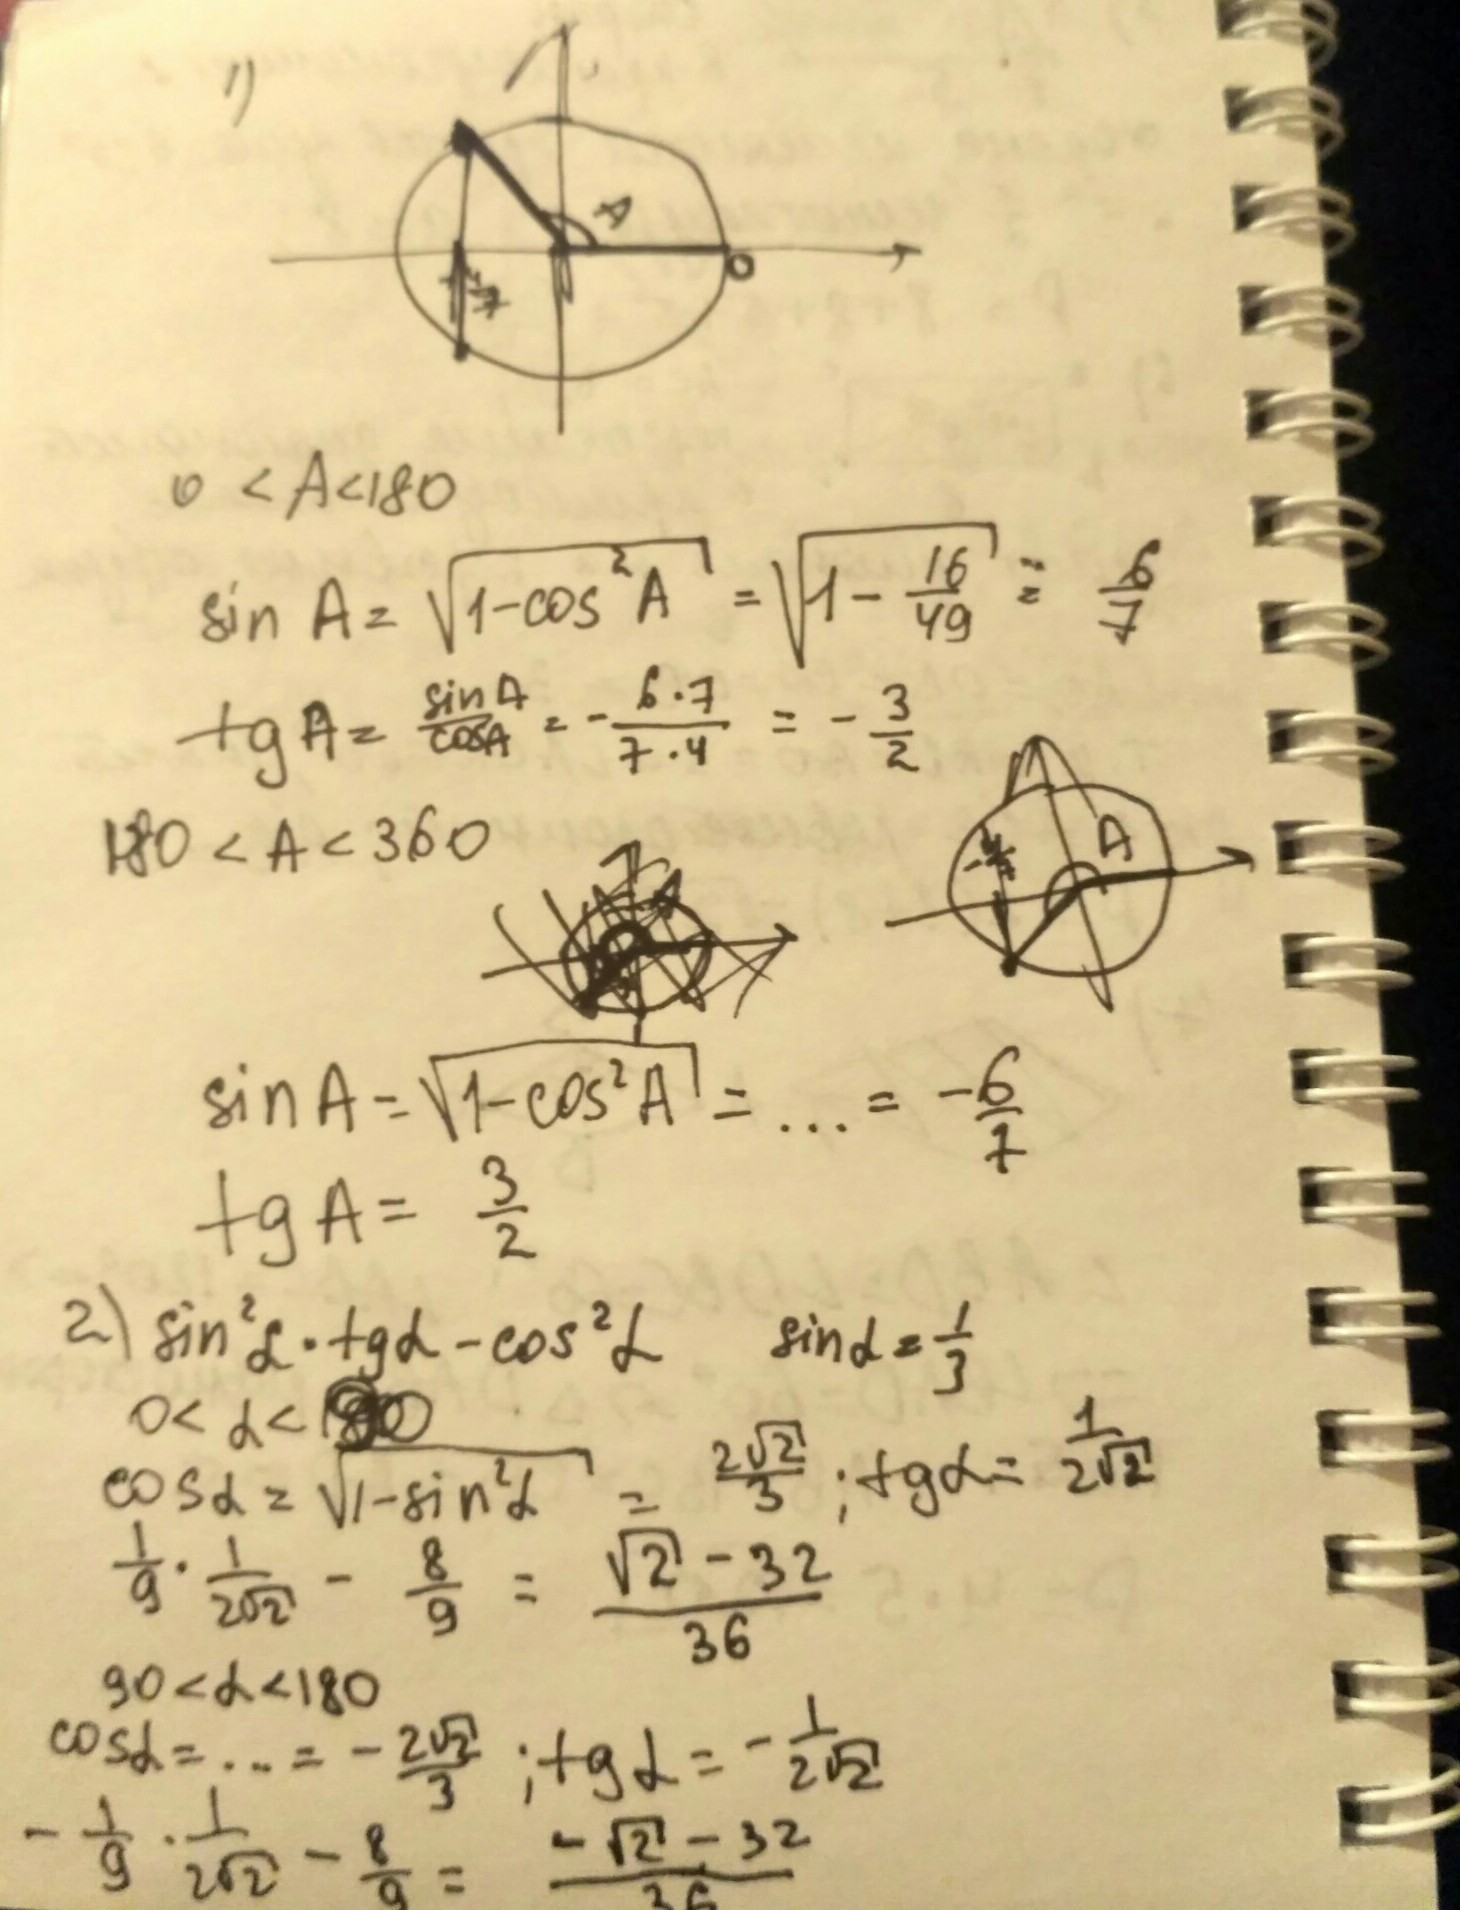 1)
A
0
-4/7
0 < A < 180
sin A = √(1-cos²A) = √(1 - 16/49) = 6/7
tg A = sin A/cos A = - 6·7/7·4 = - 3/2
180 < A < 360
A
-4/7
sin A = √(1-cos²A) = ... = -6/7
tg A = 3/2
2) sin²α · tgα - cos²α    sinα = 1/3
0 < α < 90
cosα = √(1-sin²α) = 2√2/3 ; tgα = 1/2√2
1/9 · 1/2√2 - 8/9 = √2 - 32/36
90 < α < 180
cosα = ... = - 2√2/3 ; tgα = - 1/2√2
- 1/9 · 1/2√2 - 8/9 = -√2 - 32/36